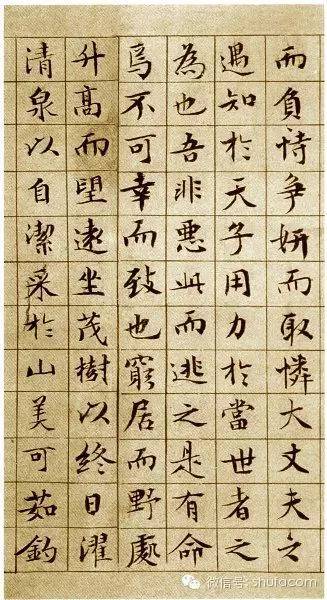 而負恃争妍而取憐大丈夫之
遇知於天子用力於當世者之
為也吾非惡此而逃之是有命
焉不可幸而致也窮居而野處
升髙而望遠坐茂樹以終日濯
清泉以自潔采於山美可茹釣
微信号: shufacom